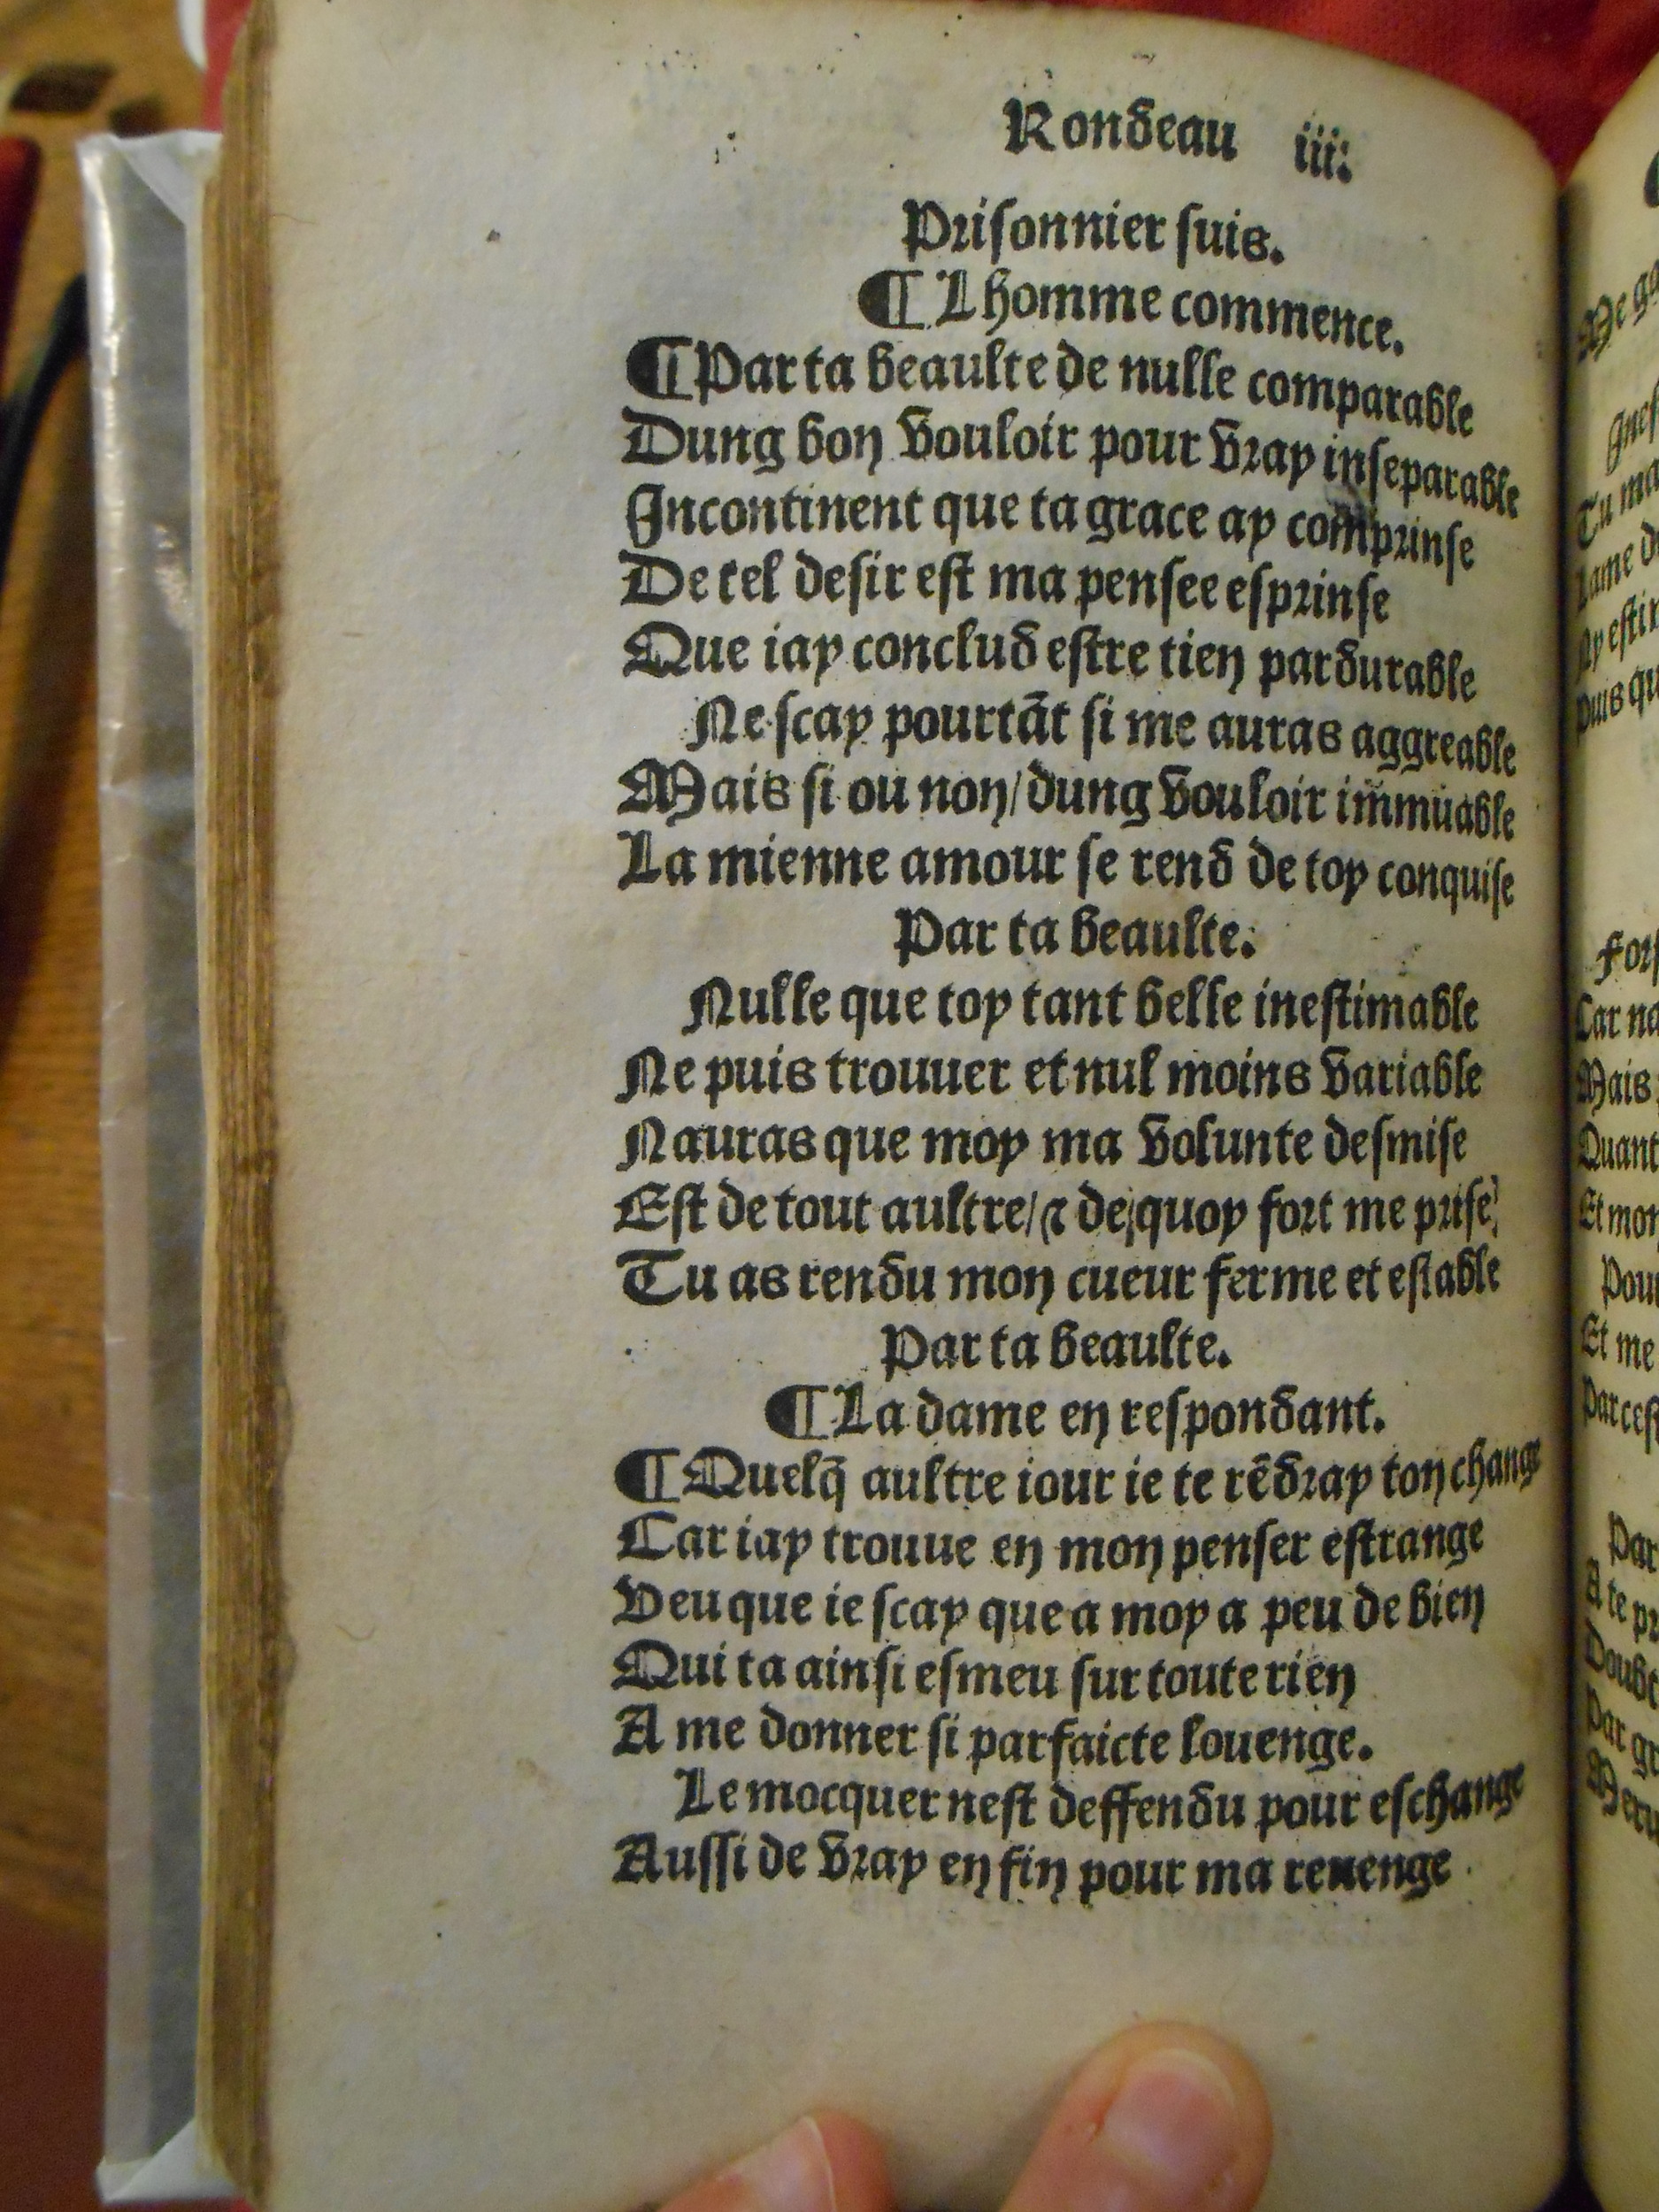 Rondeau iii.
Prisonnier suis.
¶ Lhomme commence.
¶ Par ta beaulte de nulle comparable
Dung bon vouloir pour vray inseparable
Incontinent que ta grace ay comprinse
De tel desir est ma pensee esprinse
Que iay conclud estre tien pardurable
Ne scay pourtãt si me auras aggreable
Mais si ou non/dung vouloir immuable
La mienne amour se rend de toy conquise
Par ta beaulte.
Nulle que toy tant belle inestimable
Ne puis trouuer et nul moins variable
Nauras que moy ma volunte desmise
Est de tout aultre/⁊ de quoy fort me prise
Tu as rendu mon cueur ferme et estable
Par ta beaulte.
¶ La dame en respondant.
¶ Quelq̃ aultre iour ie te rẽdray ton change
Car iay trouue en mon penser estrange
Veu que ie scay que a moy a peu de bien
Qui ta ainsi esmeu sur toute rien
A me donner si parfaicte louenge.
Le mocquer nest deffendu pour eschange
Aussi de vray en fin pour ma reuenge
Tu ma
Car na
Mais
Quant
Et mon
Et me